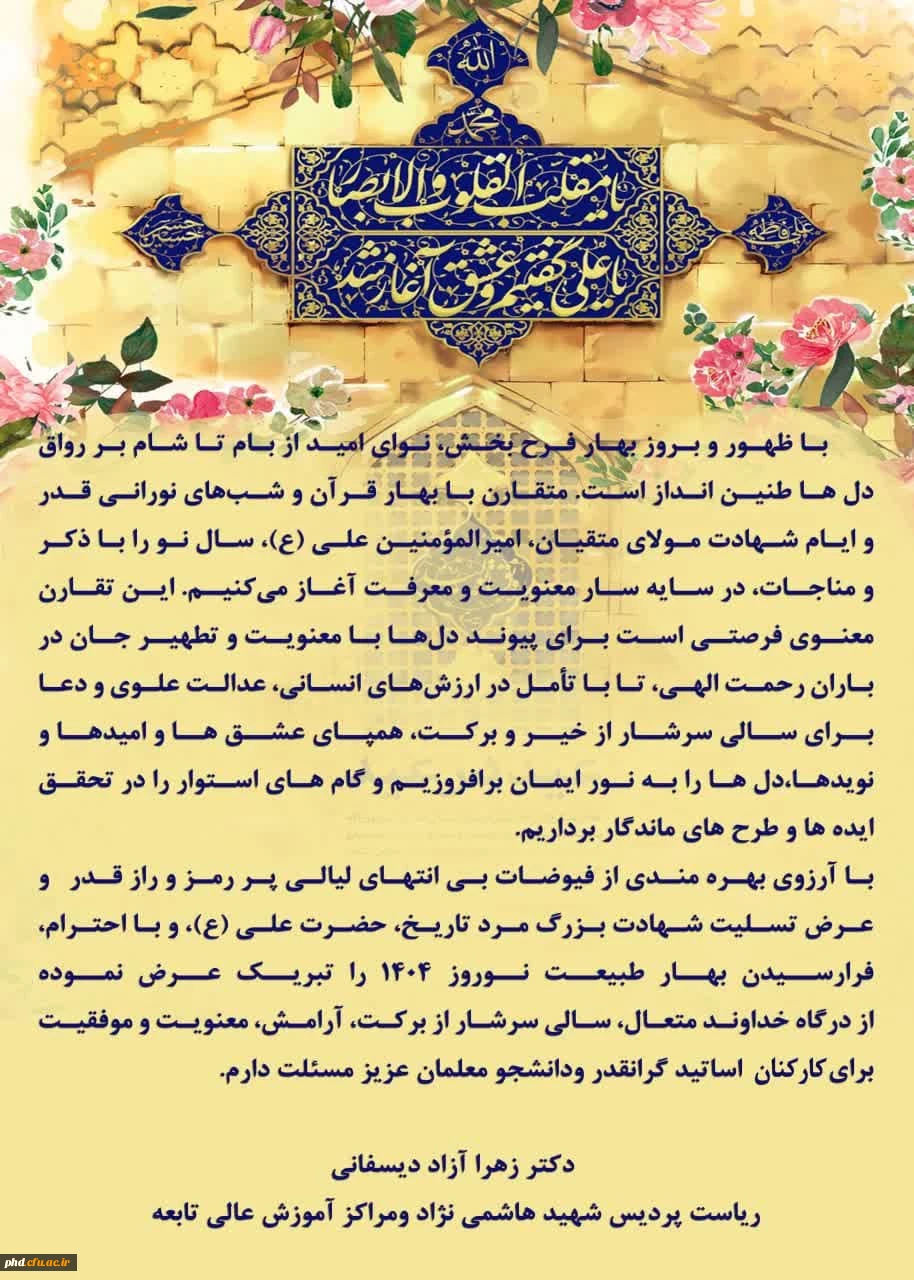 الله
محمد
یا مقلب القلوب والابصار
علی فاطمه
حسن حسین
یا علی گفتیم و عشق آغاز شد
با ظهور و بروز بهار فرح بخش، نوای امید از بام تا شام بر رواق
دل ها طنین انداز است. متقارن با بهار قرآن و شب‌های نورانی قدر
و ایام شهادت مولای متقیان، امیرالمؤمنین علی (ع)، سال نو را با ذکر
و مناجات، در سایه سار معنویت و معرفت آغاز می‌کنیم. این تقارن
معنوی فرصتی است برای پیوند دل‌ها با معنویت و تطهیر جان در
باران رحمت الهی، تا با تأمل در ارزش‌های انسانی، عدالت علوی و دعا
برای سالی سرشار از خیر و برکت، همپای عشق ها و امیدها و
نویدها،دل ها را به نور ایمان برافروزیم و گام های استوار را در تحقق
ایده ها و طرح های ماندگار برداریم.
با آرزوی بهره مندی از فیوضات بی انتهای لیالی پر رمز و راز قدر و
عرض تسلیت شهادت بزرگ مرد تاریخ، حضرت علی (ع)، و با احترام،
فرارسیدن بهار طبیعت نوروز ۱۴۰۴ را تبریک عرض نموده
از درگاه خداوند متعال، سالی سرشار از برکت، آرامش، معنویت و موفقیت
برای کارکنان اساتید گرانقدر ودانشجو معلمان عزیز مسئلت دارم.
دکتر زهرا آزاد دیسفانی
ریاست پردیس شهید هاشمی نژاد ومراکز آموزش عالی تابعه
phd.cfu.ac.ir